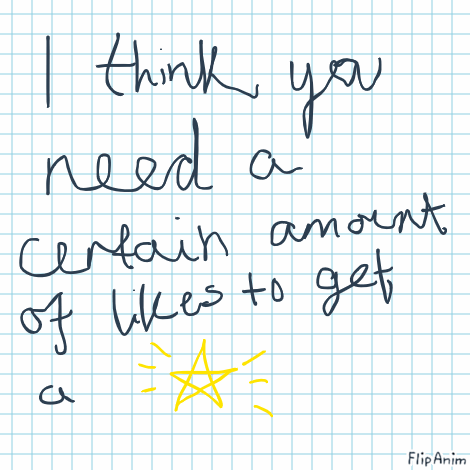 I think you
need a
certain amount
of likes to get
a
FlipAnim